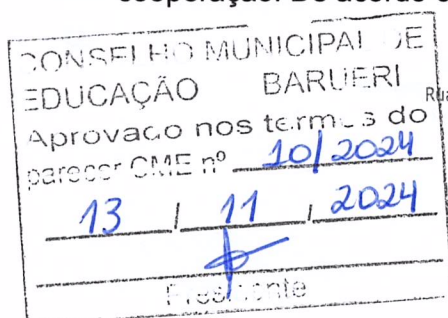 cooperação. De acordo
CONSELHO MUNICIPAL DE
EDUCAÇÃO BARUERI
Rua
Aprovado nos termos do
parecer CME nº 10/2024
13 / 11 / 2024
Presidente